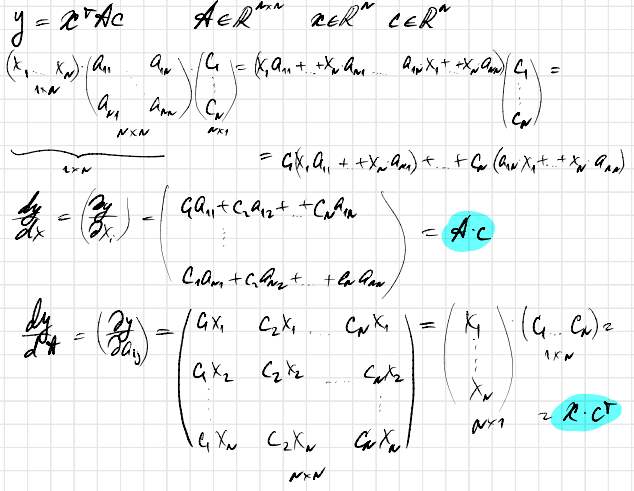 y = xᵀAc   A∈Rⁿˣⁿ   x∈Rⁿ   c∈Rⁿ
(x₁ … xₙ)·(a₁₁ … a₁ₙ ⋮ aₙ₁ … aₙₙ)·(c₁ ⋮ cₙ) = (x₁a₁₁ + … + xₙaₙ₁ … a₁ₙx₁ + … + xₙaₙₙ)(c₁ ⋮ cₙ) =
1×n   n×n   n×1
1×n   = c₁(x₁a₁₁ + … + xₙaₙ₁) + … + cₙ(a₁ₙx₁ + … + xₙaₙₙ)
dy/dx = (∂y/∂xᵢ) = (c₁a₁₁ + c₂a₁₂ + … + cₙa₁ₙ ⋮ c₁aₙ₁ + c₂aₙ₂ + … + cₙaₙₙ) = A·c
dy/dA = (∂y/∂aᵢⱼ) = (c₁x₁ c₂x₁ … cₙx₁
c₁x₂ c₂x₂ … cₙx₂
⋮
c₁xₙ c₂xₙ cₙxₙ) = (x₁ ⋮ xₙ)·(c₁ … cₙ) =
n×n   n×1   1×n
= x·cᵀ